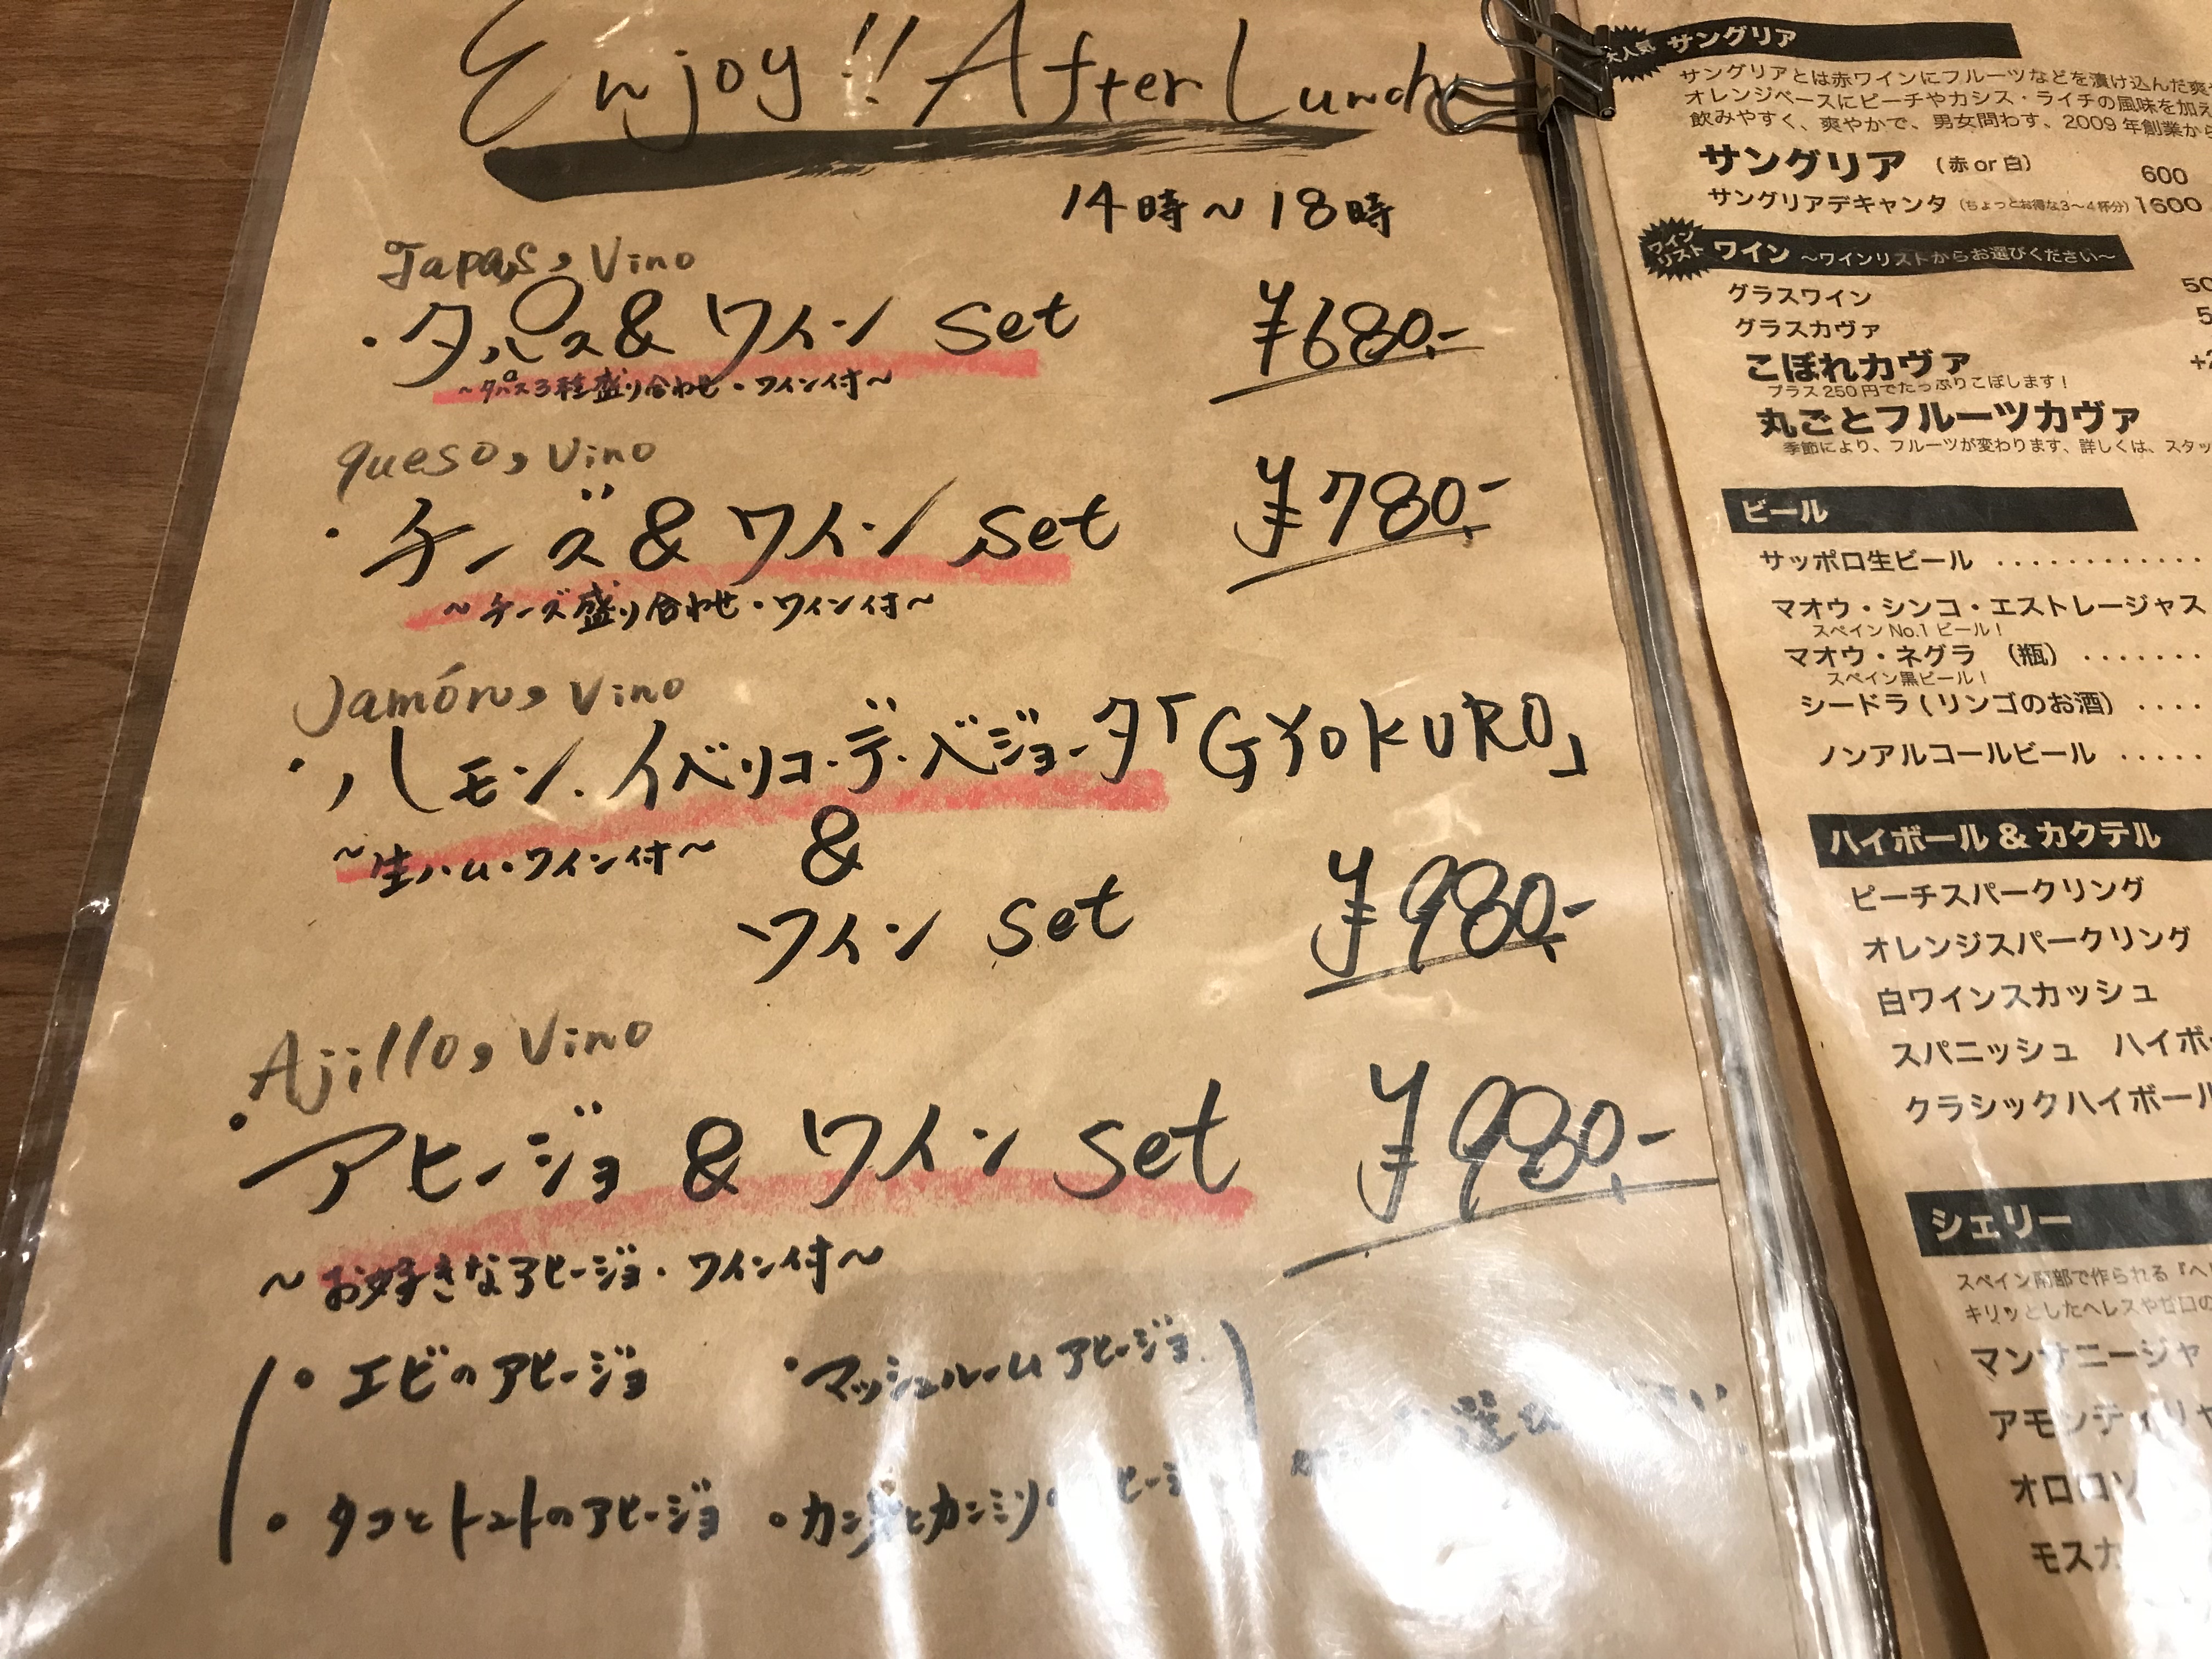 Enjoy!! After Lunch
14時～18時
Tapas, Vino
・タパス&ワイン set ¥680.-
～タパス3種盛り合わせ・ワイン付～
queso, Vino
・チーズ&ワイン set ¥780.-
～チーズ盛り合わせ・ワイン付～
Jamón, Vino
・ハモン・イベリコ・デ・ベジョータ「GYOKURO」
～生ハム・ワイン付～ &
ワイン set ¥980.-
Ajillo, Vino
・アヒージョ & ワイン set ¥980.-
～お好きなアヒージョ・ワイン付～
・エビのアヒージョ ・マッシュルームアヒージョ
・タコとトマトのアヒージョ
大人気 サングリア
サングリアとは赤ワインにフルーツなどを漬け込んだ爽
オレンジベースにピーチやカシス・ライチの風味を加え
飲みやすく、爽やかで、男女問わず、2009年創業から
サングリア (赤or白) 600
サングリアデキャンタ (ちょっとお得な3～4杯分) 1600
ワインリスト ワイン ～ワインリストからお選びください～
グラスワイン
グラスカヴァ
こぼれカヴァ
プラス250円でたっぷりこぼします！
丸ごとフルーツカヴァ
季節により、フルーツが変わります、詳しくは、スタッ
ビール
サッポロ生ビール ............
マオウ・シンコ・エストレージャス
スペインNo.1ビール！
マオウ・ネグラ (瓶) .......
スペイン黒ビール！
シードラ(リンゴのお酒) ....
ノンアルコールビール .....
ハイボール & カクテル
ピーチスパークリング
オレンジスパークリング
白ワインスカッシュ
スパニッシュ ハイボ
クラシックハイボール
シェリー
スペイン南部で作られる『ヘ
キリッとしたヘレスや甘口の
マンサニージャ
アモンティリャ
オロロソ
モスカ